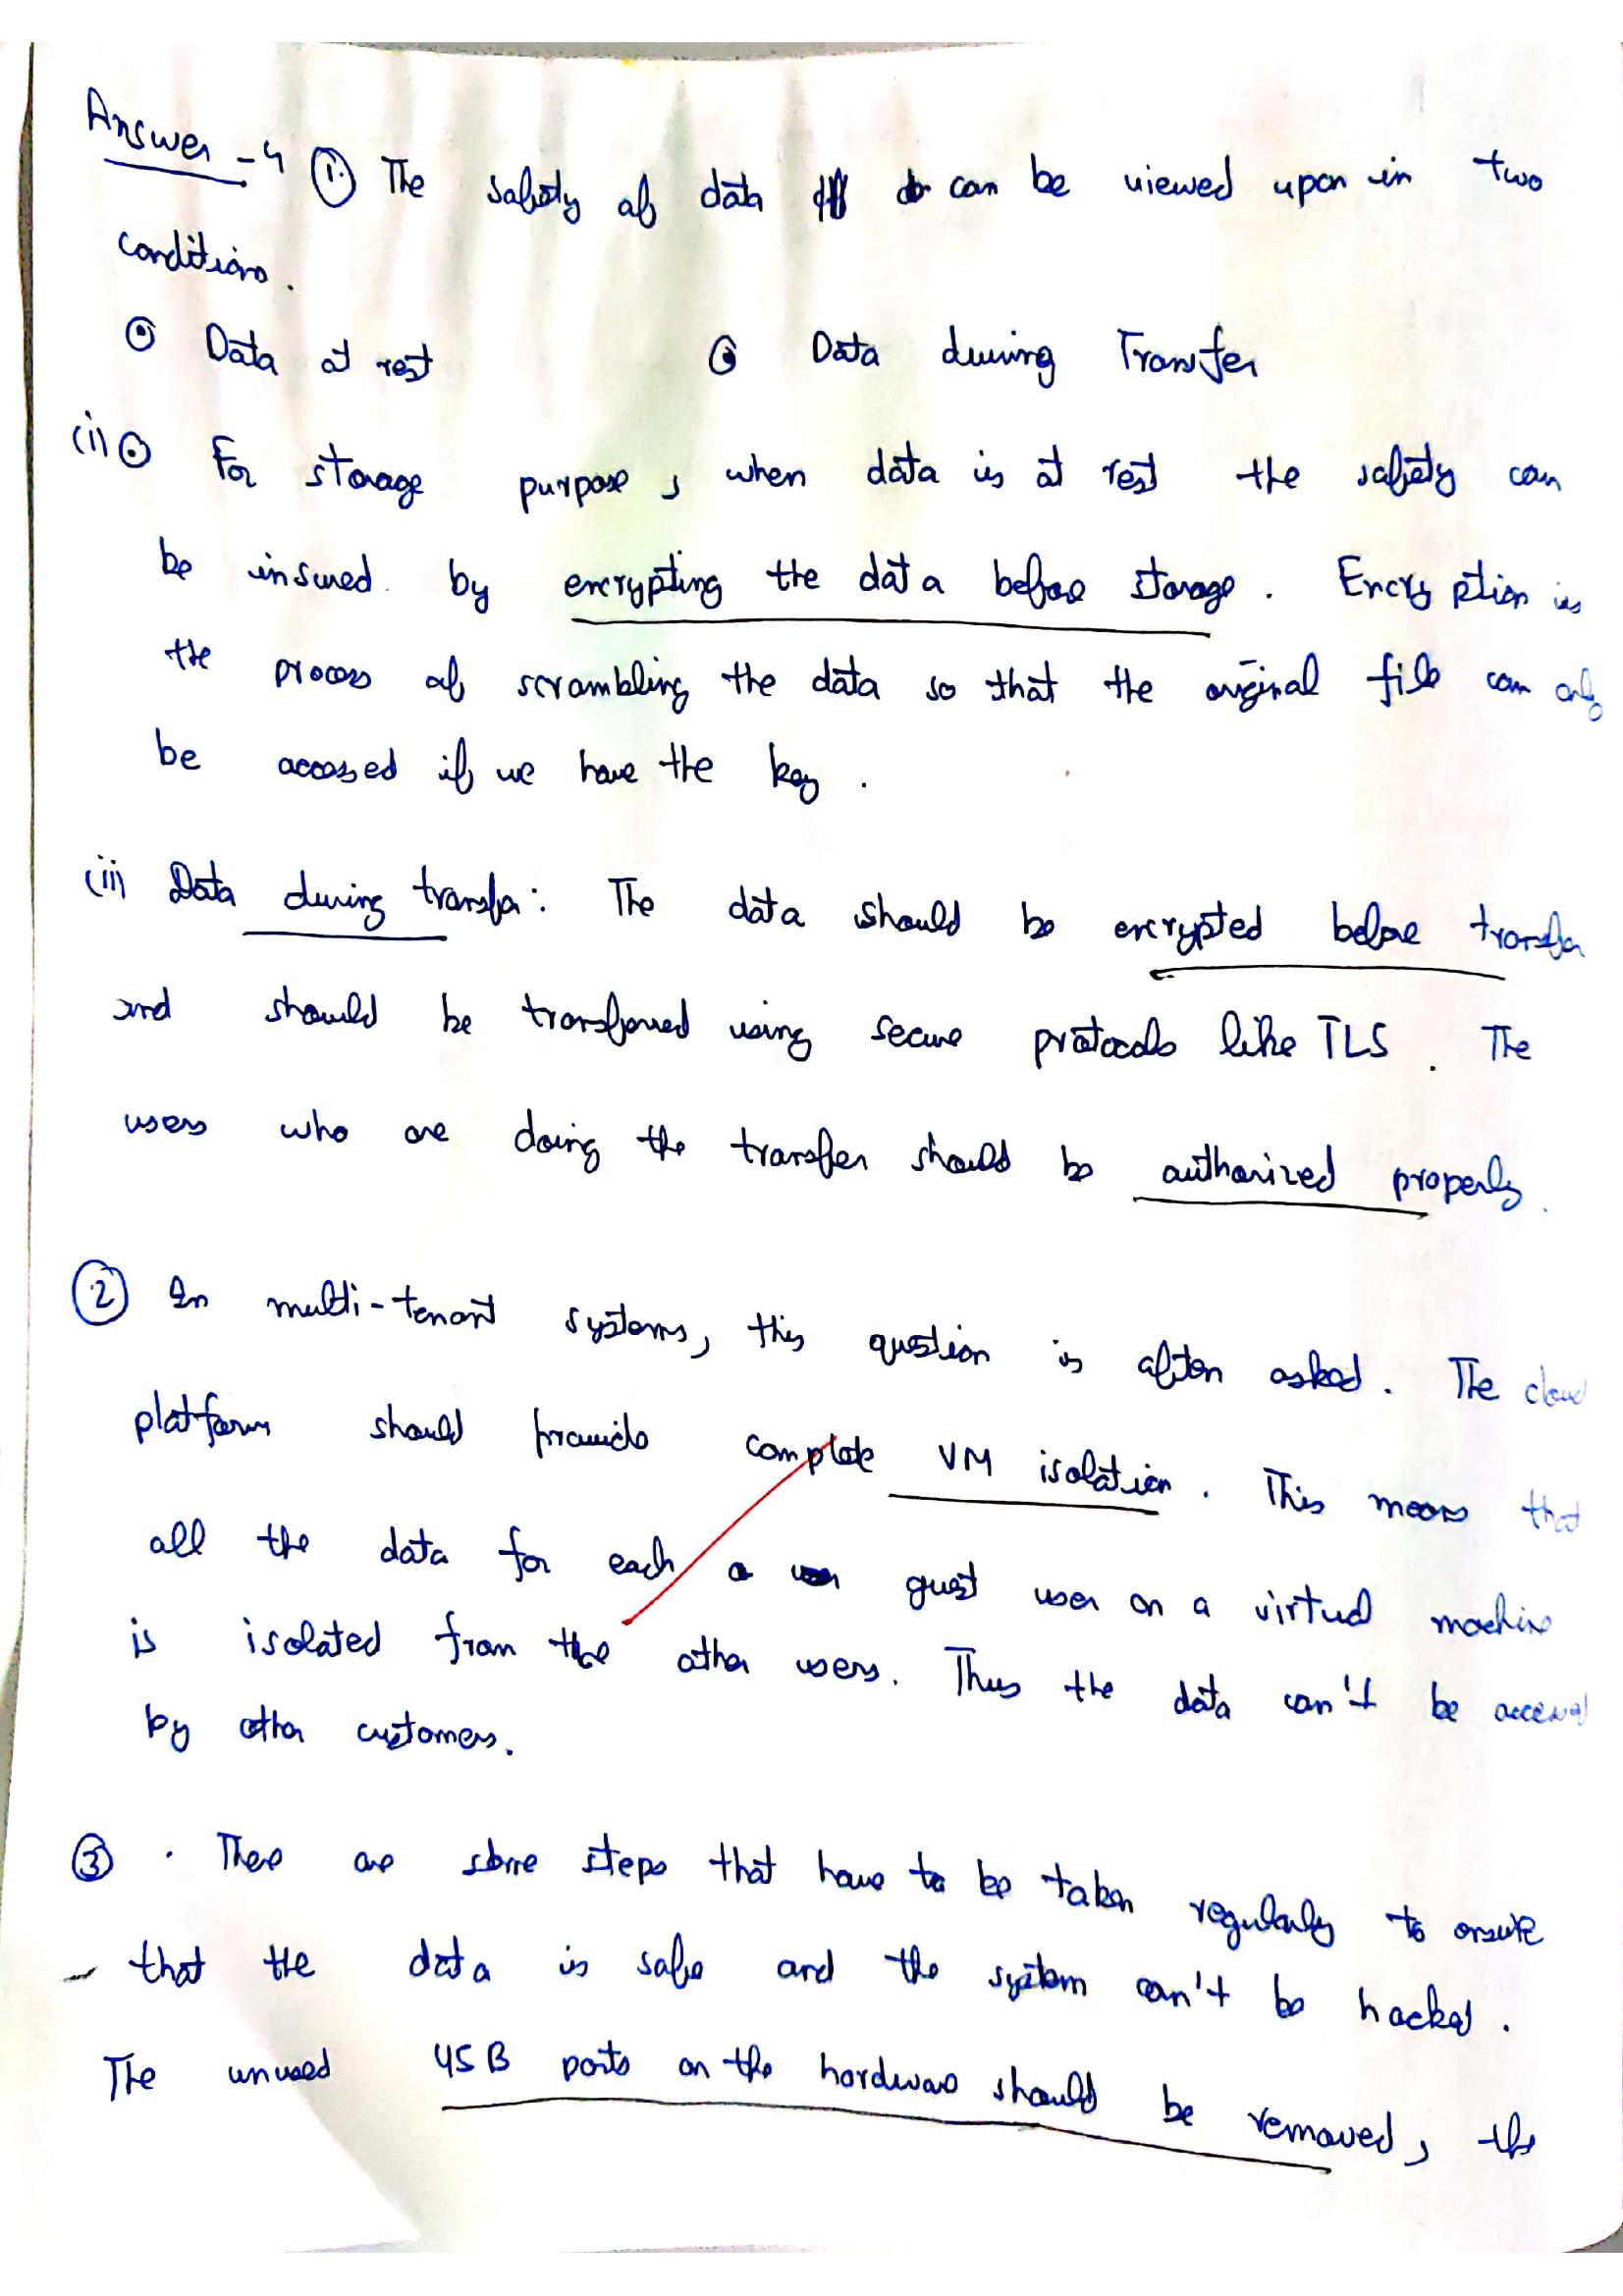 Answer - 4 ① The safety of data can be viewed upon in two
conditions.
⊙ Data at rest ⊙ Data during Transfer
(i) ⊙ For storage purpose, when data is at rest the safety can
be insured by encrypting the data before storage. Encryption is
the process of scrambling the data so that the original file can only
be accessed if we have the key.
(ii) Data during transfer: The data should be encrypted before transfer
and should be transferred using secure protocols like TLS. The
users who are doing the transfer should be authorized properly.
② In multi-tenant systems, this question is often asked. The cloud
platform should provide complete VM isolation. This means that
all the data for each guest user on a virtual machine
is isolated from the other users. Thus the data can't be accessed
by other customers.
③ There are some steps that have to be taken regularly to ensure
that the data is safe and the system can't be hacked.
The unused USB ports on the hardware should be removed, the